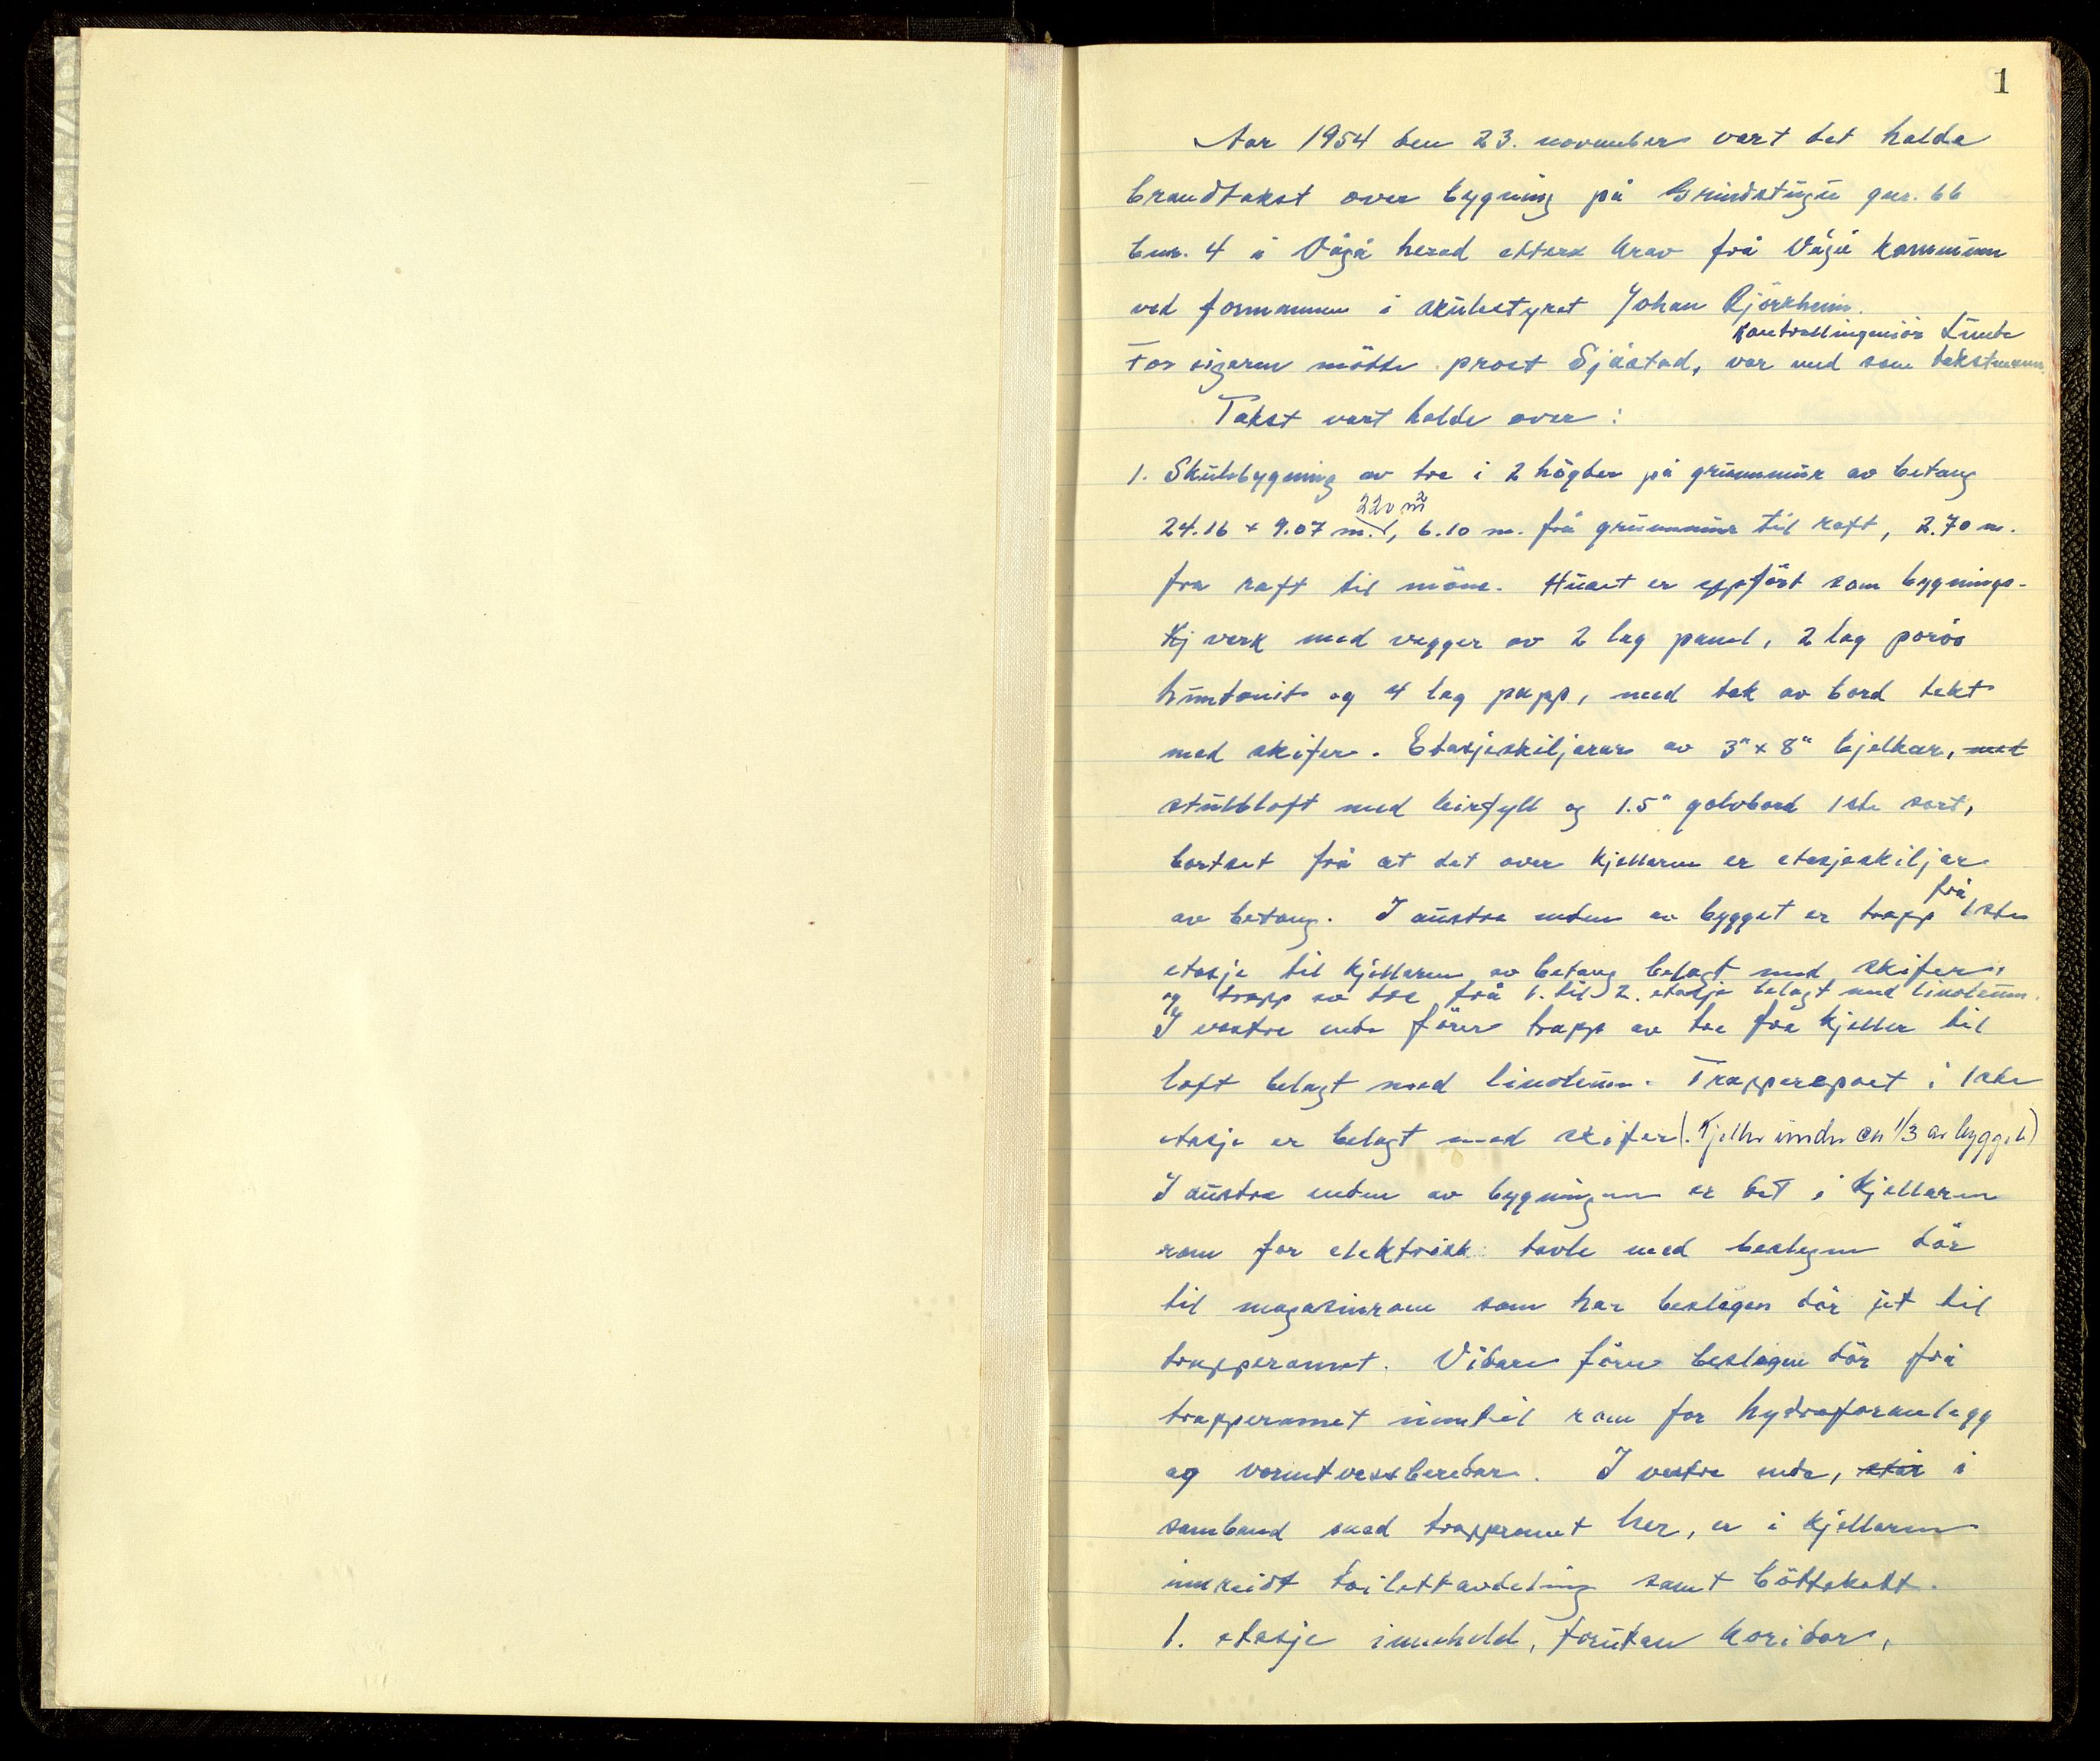 1
Aar 1954 den 23. november vart det halde
brandtakst over bygning på Grindstugu gnr. 66
bnr. 4 i Vågå herad etter krav frå Vågå kommune
ved formannen i skulestyret Johan Bjørkheim.
Kontrollingeniør Lunde
For eigaren møtte prost Sjåstad, var med som takstmann.
Takst vart halde over:
1. Skulebygning av tre i 2 högder på grunnmur av betong
220 m²
24.16 x 9.07 m., 6.10 m. frå grunnmur til raft, 2.70 m.
fra raft til möne. Huset er oppfört som bygnings-
verk med vegger av 2 lag panel, 2 lag porøs
huntonit og 4 lag papp, med tak av bord tekt
med skifer. Etasjeskiljarar av 3" x 8" bjelkar, med
stubbloft med leirfyll og 1.5" golvbord 1ste sort,
bortset frå at det over kjellaren er etasjeskiljar
frå
av betong. I austre enden av bygget er trapp 1ste
etasje til kjellaren av betong belagt med skifer,
og trapp av tre frå 1. til 2. etasje belagt med linoleum.
I vestre ende förer trapp av tre fra kjeller til
loft belagt med linoleum. Trapperepoet i 1ste
etasje er belagt med skifer (. Kjeller under ca 1/3 av bygget)
I austre enden av bygningen er det i kjellaren
rom for elektrisk tavle med beslegen dör
til magasinrom som har beslegen dör ut til
trapperommet. Vidare förer beslegen dör frå
trapperomet inntil rom for hydroforanlegg
og varmtvassberedar. I vestre ende, står i
samband med trapperomet her, er i kjellaren
innreidt toilettavdeling samt böttekott.
1. etasje inneheld, forutan koridor,